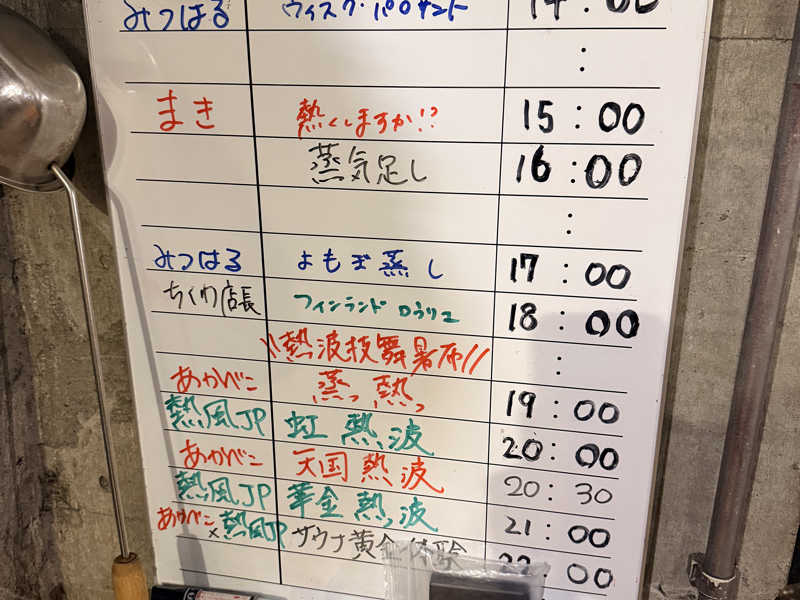 みつはる ウィスク・パロサント 14:00
:
まき 熱くしますか!? 15:00
蒸気足し 16:00
:
みつはる よもぎ蒸し 17:00
ちくわ店長 フィンランドロウリュ 18:00
\\熱波技舞暑 // :
あかべこ 蒸っ熱っ 19:00
熱風JP 虹熱波 20:00
あかべこ 天国熱波 20:30
熱風JP 華金熱波 21:00
あかべこ×熱風JP サウナ黄金体験 22:00